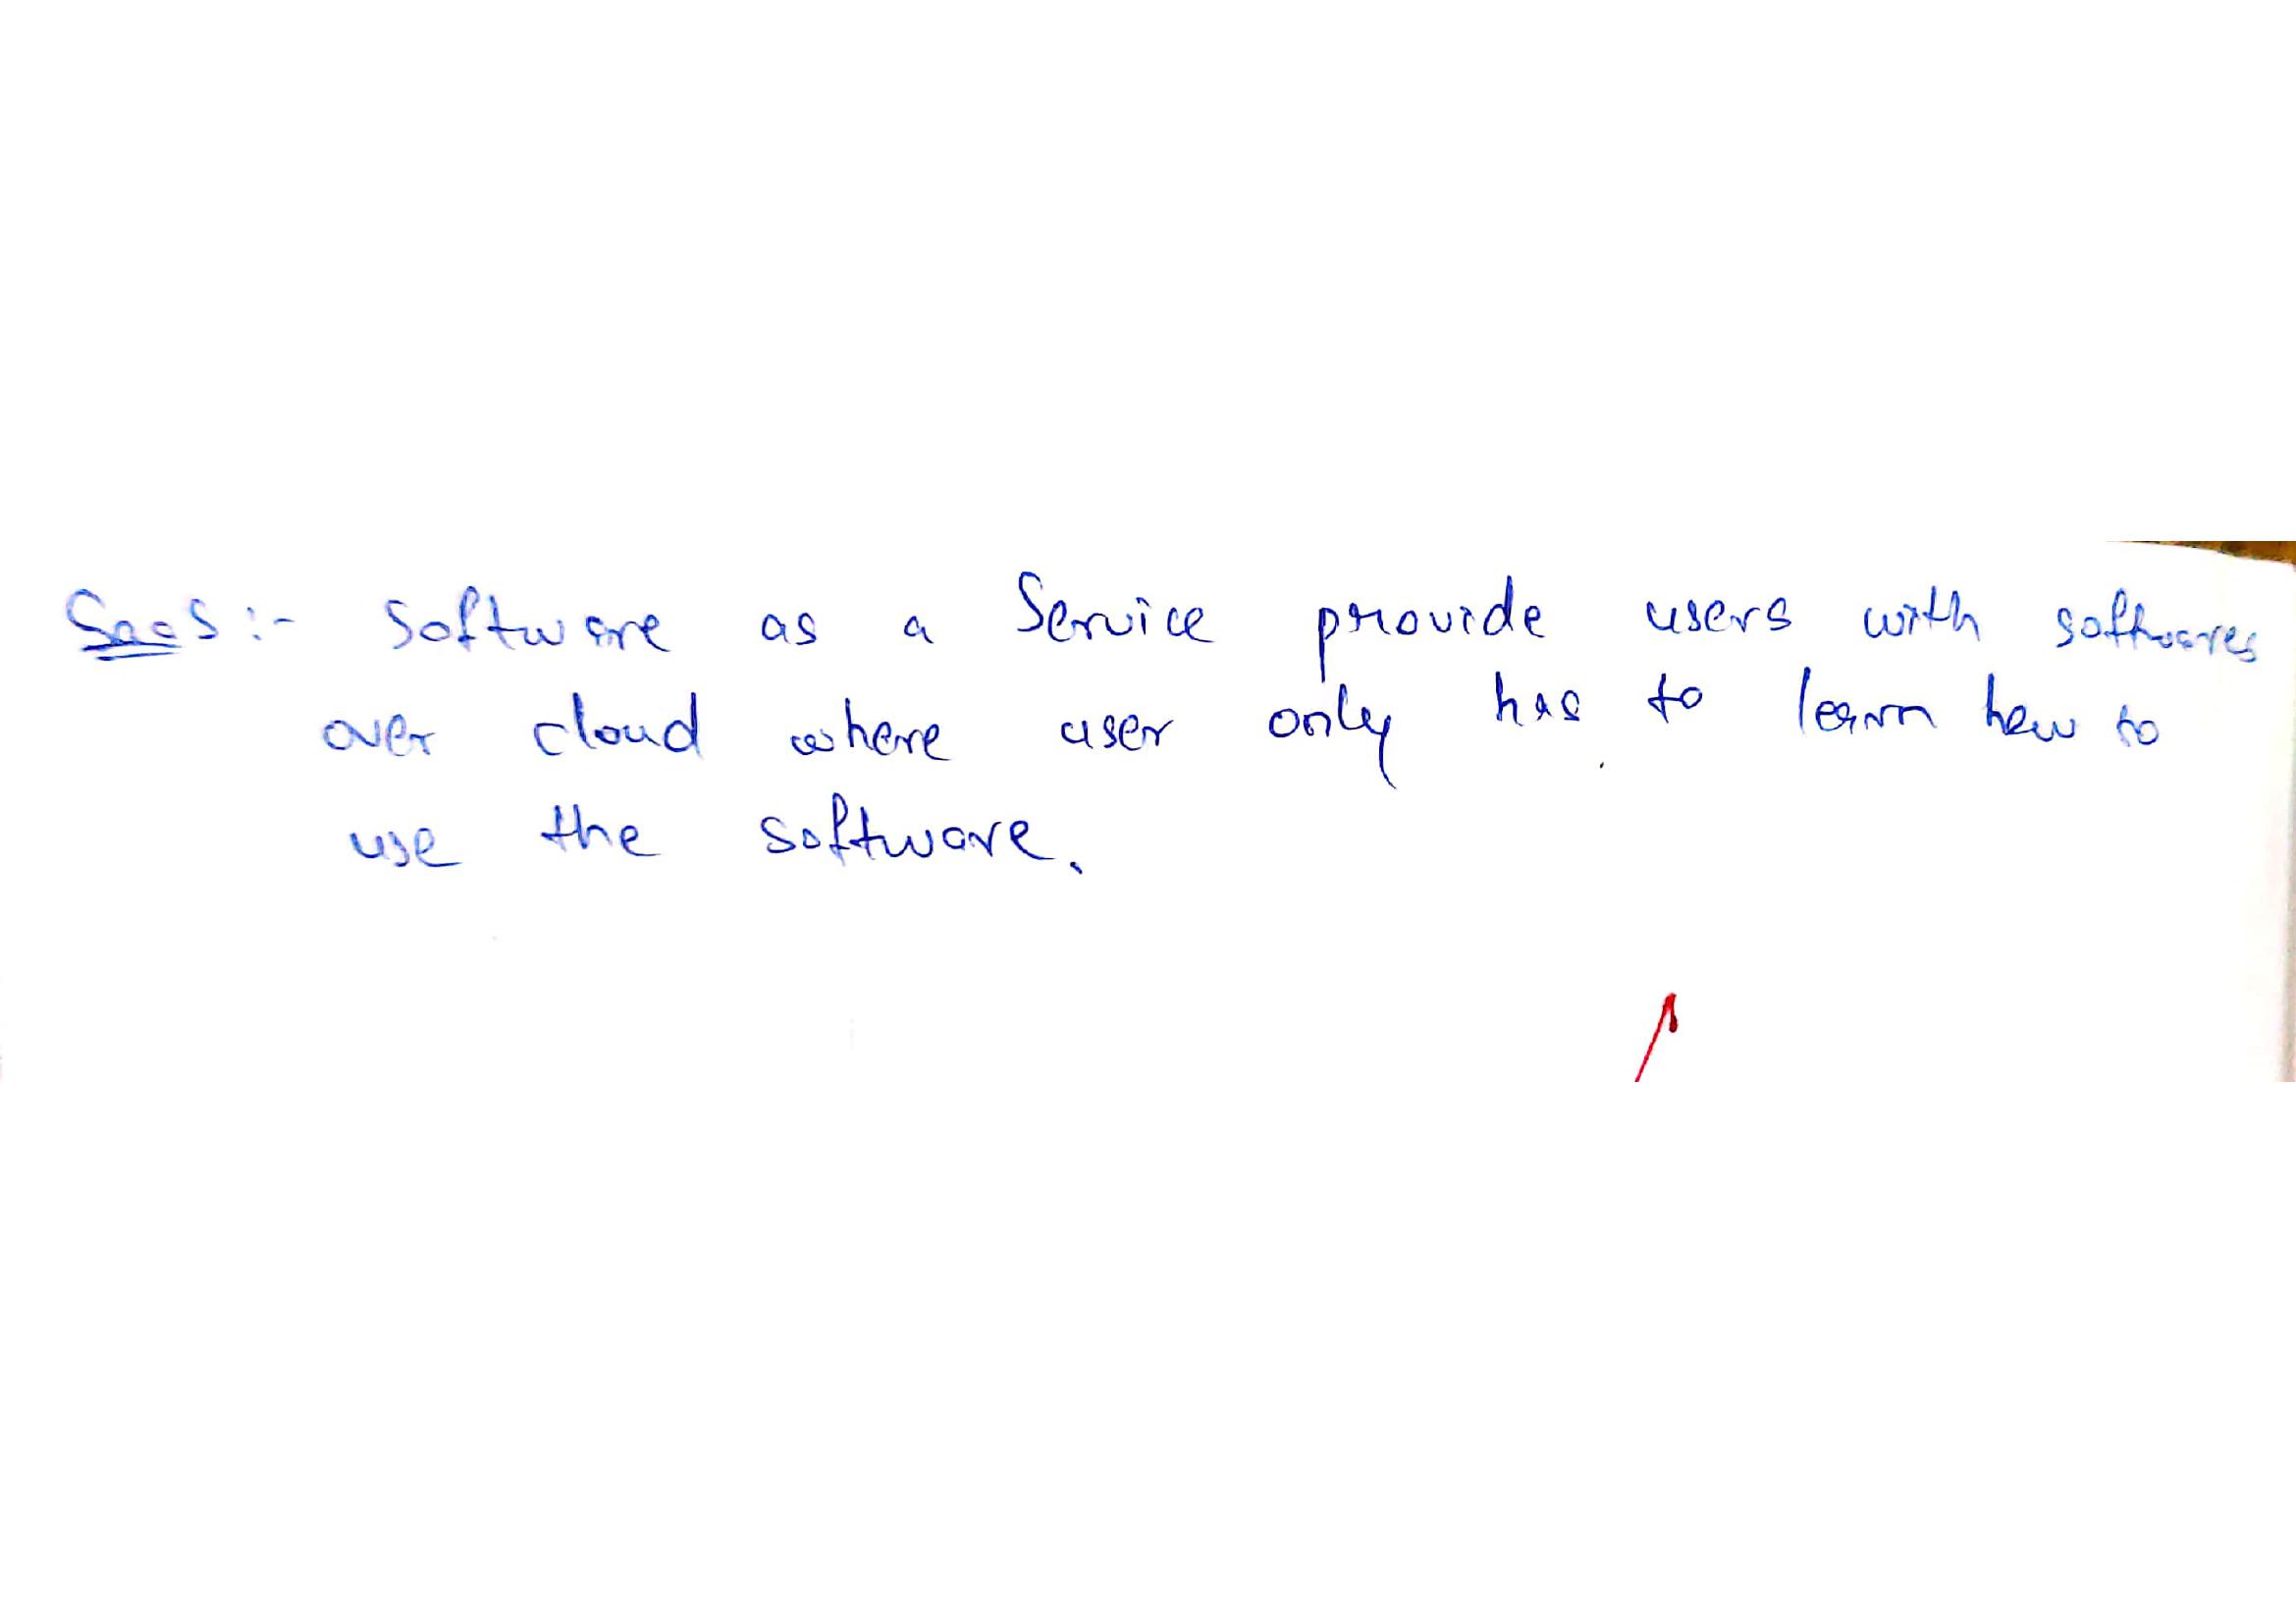 SaaS :- Software as a Service provide users with softwares
over cloud where user only has to learn how to
use the software.